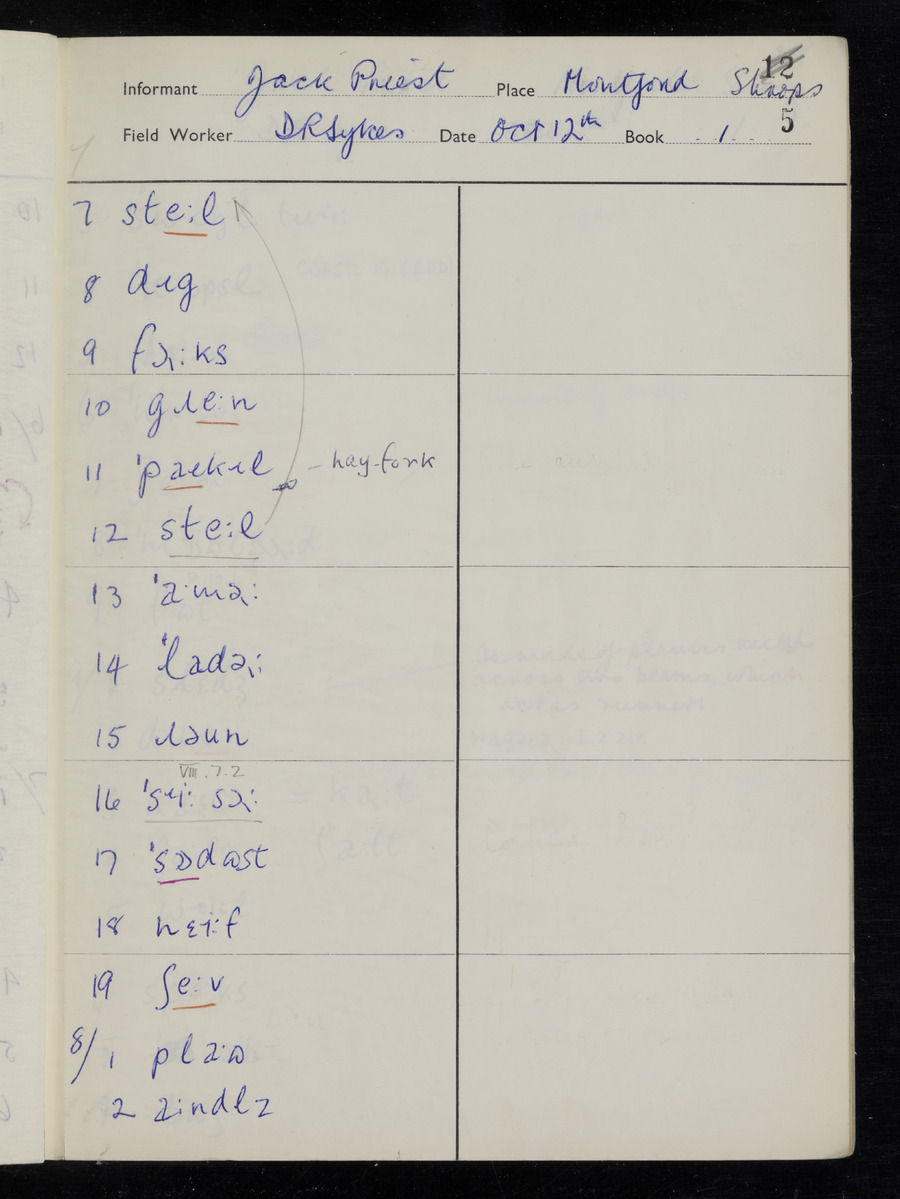 12
Informant Jack Priest Place Montford Shrops
5
Field Worker D R Sykes Date Oct 12th Book 1
7 ste:l
8 dɪg
9 fɔɹ:ks
10 gɹe:n
11 'pækɪl – hay-fork
12 ste:l
13 'aməɹ:
14 'ladəɹ:
15 ɹəun
VIII.7.2
16 'sɪi:səɹ:
17 'sɒdʊst
18 nɛi:f
19 ʃe:v
8/1 pla:ʊ
2 a:ndlz